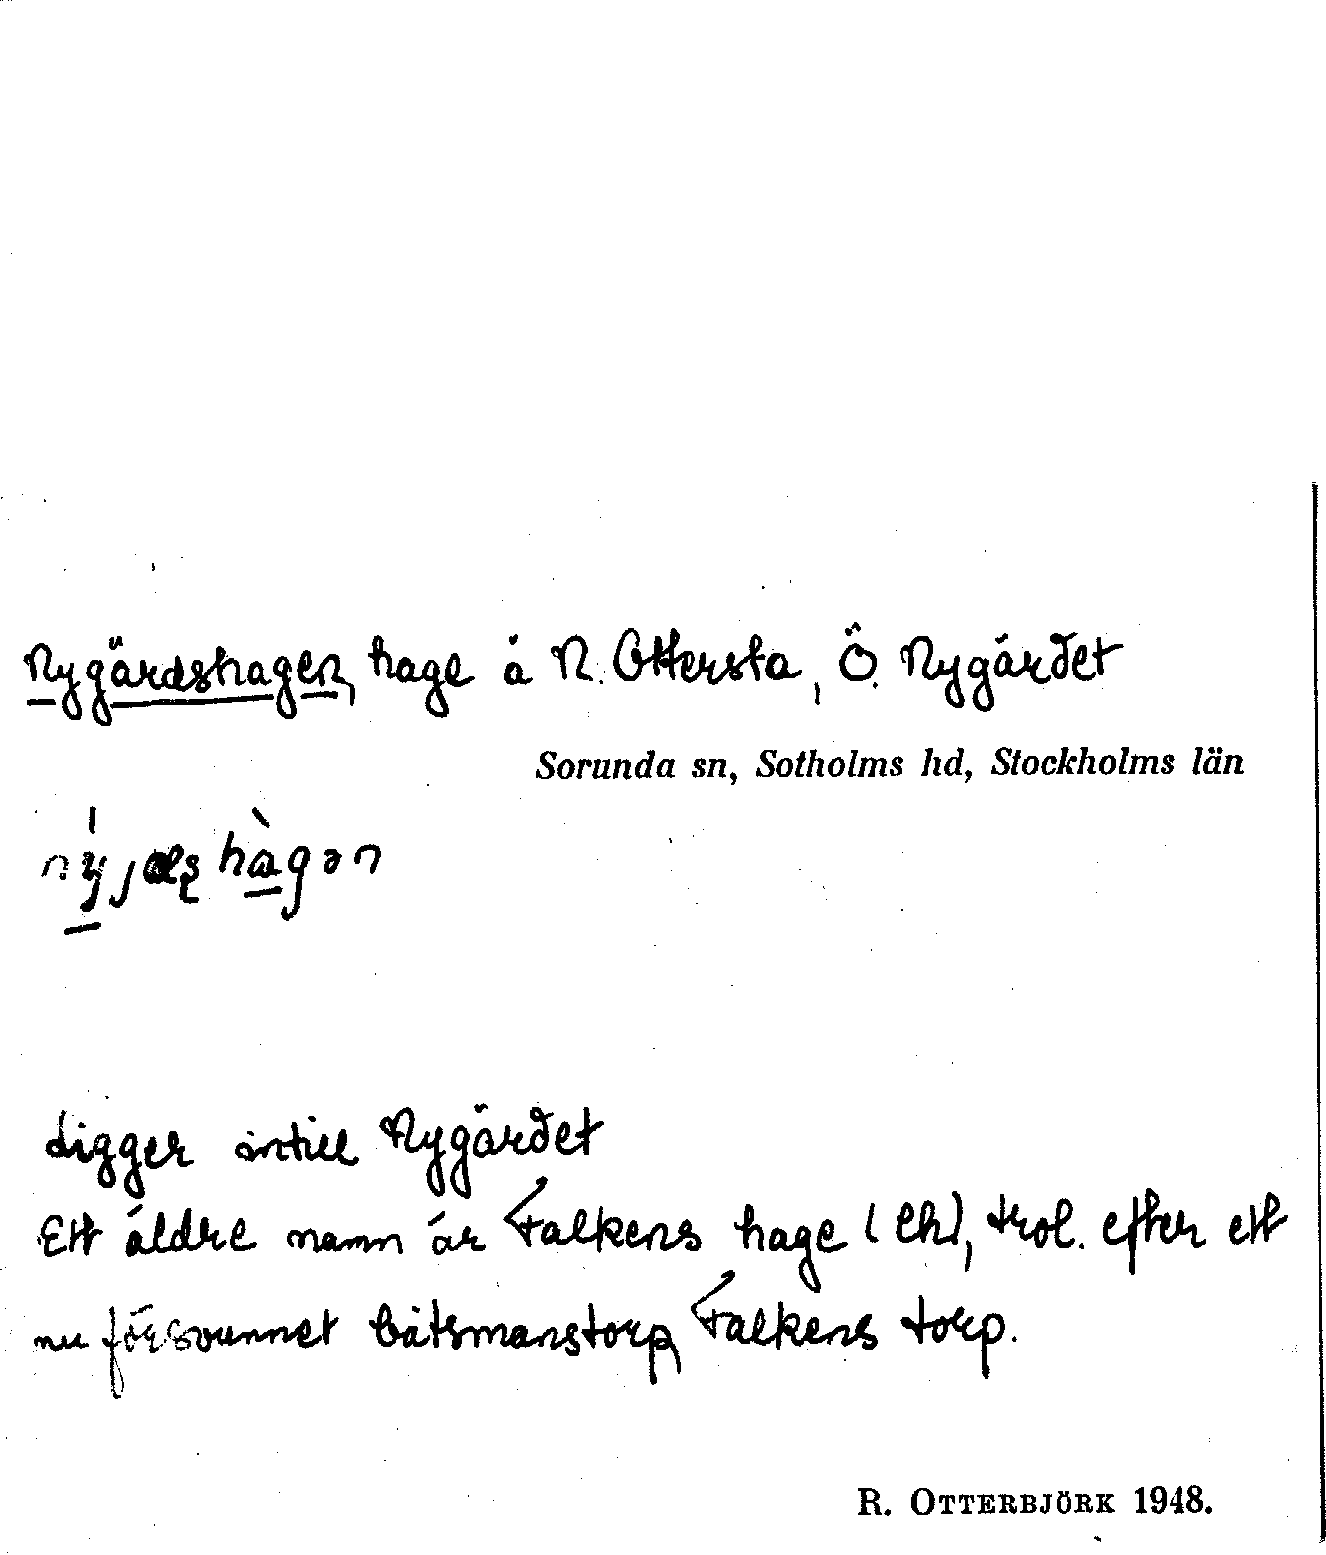 Nygärdshagen, hage å N. Ottersta, Ö. Nygärdet
Sorunda sn, Sotholms hd, Stockholms län
hàgən
Ligger intill Nygärdet
Ett äldre namn är Falkens hage (Eh), trol. efter ett
nu försvunnet båtsmanstorp, Falkens torp.
R. OTTERBJÖRK 1948.